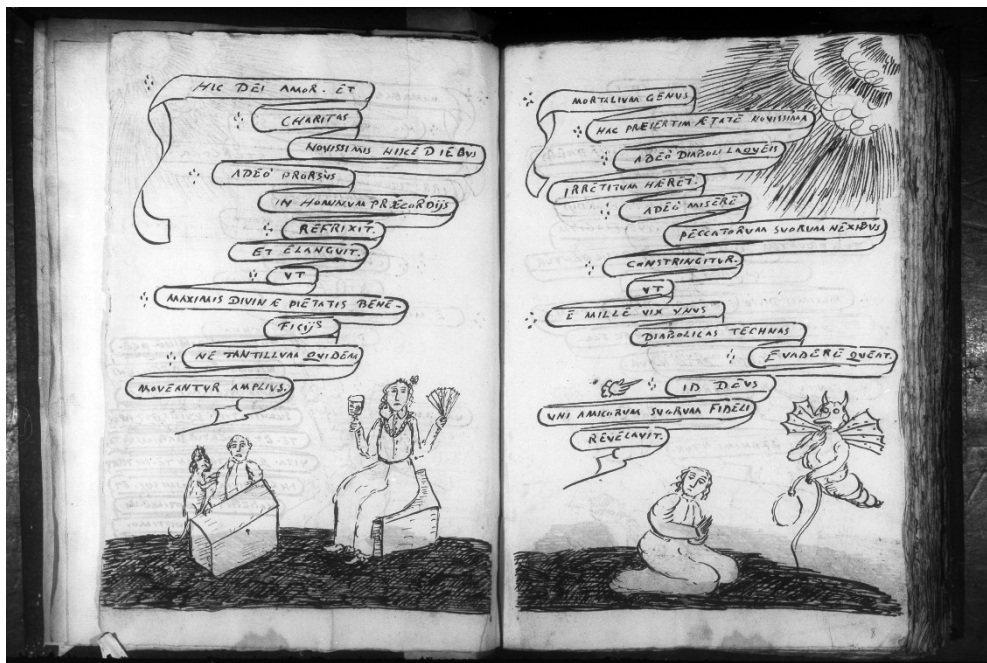 HIC DEI AMOR. ET
CHARITAS
NOVISSIMIS HISCE DIEBVS
ADEÒ PRORSVS
IM HOMINVM PRÆCORDIJS
REFRIXIT.
ET ELANGUIT.
VT
MAXIMIS DIVINÆ PIETATIS BENE-
FICIJS
NE TANTILLVM QVIDEM
MOVEANTVR AMPLIVS.
MORTALIVM GENVS
HAC PRÆSERTIM ÆTATE NOVISSIMA
ADEÒ DIABOLI LAQVEIS
IRRETITVM HÆRET.
ADEÒ MISERÈ
PECCATORVM SVORVM NEXIBVS
CONSTRINGITVR.
VT
È MILLE VIX VNVS
DIABOLICAS TECHNAS
EVADERE QVEAT.
ID DEVS
VNI AMICORVM SVORVM FIDELI
REVELAVIT.
8